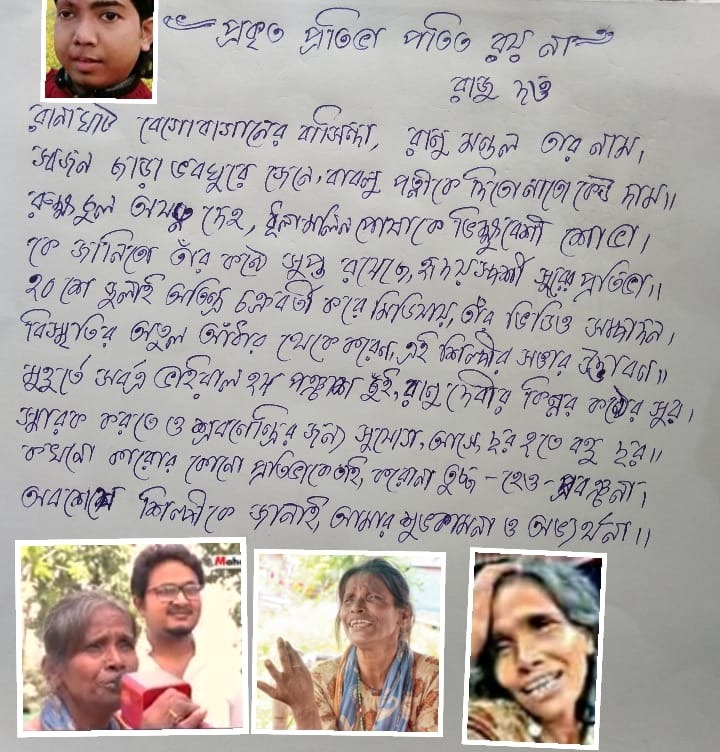 প্রকৃত প্রতিভা পতিত রয় না
রাজু দত্ত
রানাঘাট বেগোবাগানের বাসিন্দা, রানু মণ্ডল তার নাম,
স্বজন ছাড়া ভবঘুরে জেনে, বাবলু পত্নীকে দিতো নাতো কেউ দাম॥
রুক্ষ্ম চুল অযত্ন দেহ, ধূলামলিন পোষাকে ভিক্ষুবেশী শোভা।
কে জানিতো তাঁর কন্ঠে সুপ্ত রয়েছে, হৃদয়স্পর্শী সুরের প্রতিভা॥
২০ শে জুলাই অতিন্দ্র চক্রবর্তী করে মিডিয়ায়, তাঁর ভিডিও সম্পাদন,
বিস্মৃতির অতুল আঁধার থেকে করেন, এই শিল্পীর সত্তার উদ্ভাবন॥
মুহূর্তে সর্বত্র ভাইরাল হয় রানু দেবীর কিন্নর কন্ঠের সুর।
স্মারক করতে ও শ্রবণেন্দ্রির জন্য সুযোগ, আসে দূর হতে বহু দূর॥
কখনো কারোর কোনো প্রতিভাকে তাই, করোনা তুচ্ছ - হেও - প্রবঞ্চনা,
অবশেষে শিল্পীকে জানাই, আমার শুভকামনা ও অভ্যর্থনা॥
Maha